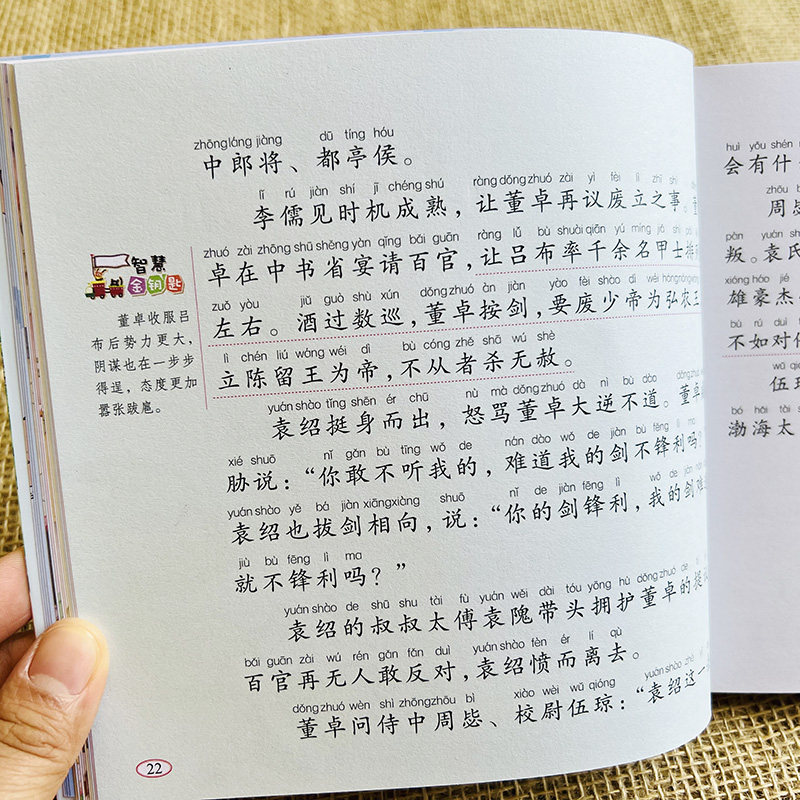 zhōng láng jiàng dū tíng hóu
中郎将、都亭侯。
lǐ rú jiàn shí jī chéng shú ràng dǒng zhuó zài yì fèi lì zhī shì
李儒见时机成熟，让董卓再议废立之事。
zhuó zài zhōng shū shěng yàn qǐng bǎi guān ràng lǚ bù shuài qiān yú míng jiǎ shì
卓在中书省宴请百官，让吕布率千余名甲士排
zuǒ yòu jiǔ guò shù xún dǒng zhuó àn jiàn yào fèi shào dì wéi hóng nóng
左右。酒过数巡，董卓按剑，要废少帝为弘农王
lì chén liú wáng wéi dì bù cóng zhě shā wú shè
立陈留王为帝，不从者杀无赦。
yuán shào tǐng shēn ér chū nù mà dǒng zhuó dà nì bù dào
袁绍挺身而出，怒骂董卓大逆不道。董卓
xié shuō nǐ gǎn bù tīng wǒ de nán dào wǒ de jiàn bù fēng lì
胁说：“你敢不听我的，难道我的剑不锋利吗？
yuán shào yě bá jiàn xiāng xiàng shuō nǐ de jiàn fēng lì wǒ de jiàn
袁绍也拔剑相向，说：“你的剑锋利，我的剑难
jiù bù fēng lì ma
就不锋利吗？”
yuán shào de shū shu tài fù yuán wěi dài tóu yōng hù dǒng zhuó de
袁绍的叔叔太傅袁隗带头拥护董卓的提
bǎi guān zài wú rén gǎn fǎn duì yuán shào fèn ér lí qù
百官再无人敢反对，袁绍愤而离去。
dǒng zhuó wèn shì zhōng zhōu bì xiào wèi wǔ qióng yuán shào zhè
董卓问侍中周毖、校尉伍琼：“袁绍这一
22
智慧
金钥匙
董卓收服吕
布后势力更大，
阴谋也在一步步
得逞，态度更加
嚣张跋扈。
huì yǒu shén
会有什
zhōu
周毖
pàn yuán
叛。袁氏
xióng háo jié
雄豪杰
bù rú duì
不如对
wǔ
伍琼
bó hǎi tài
渤海太